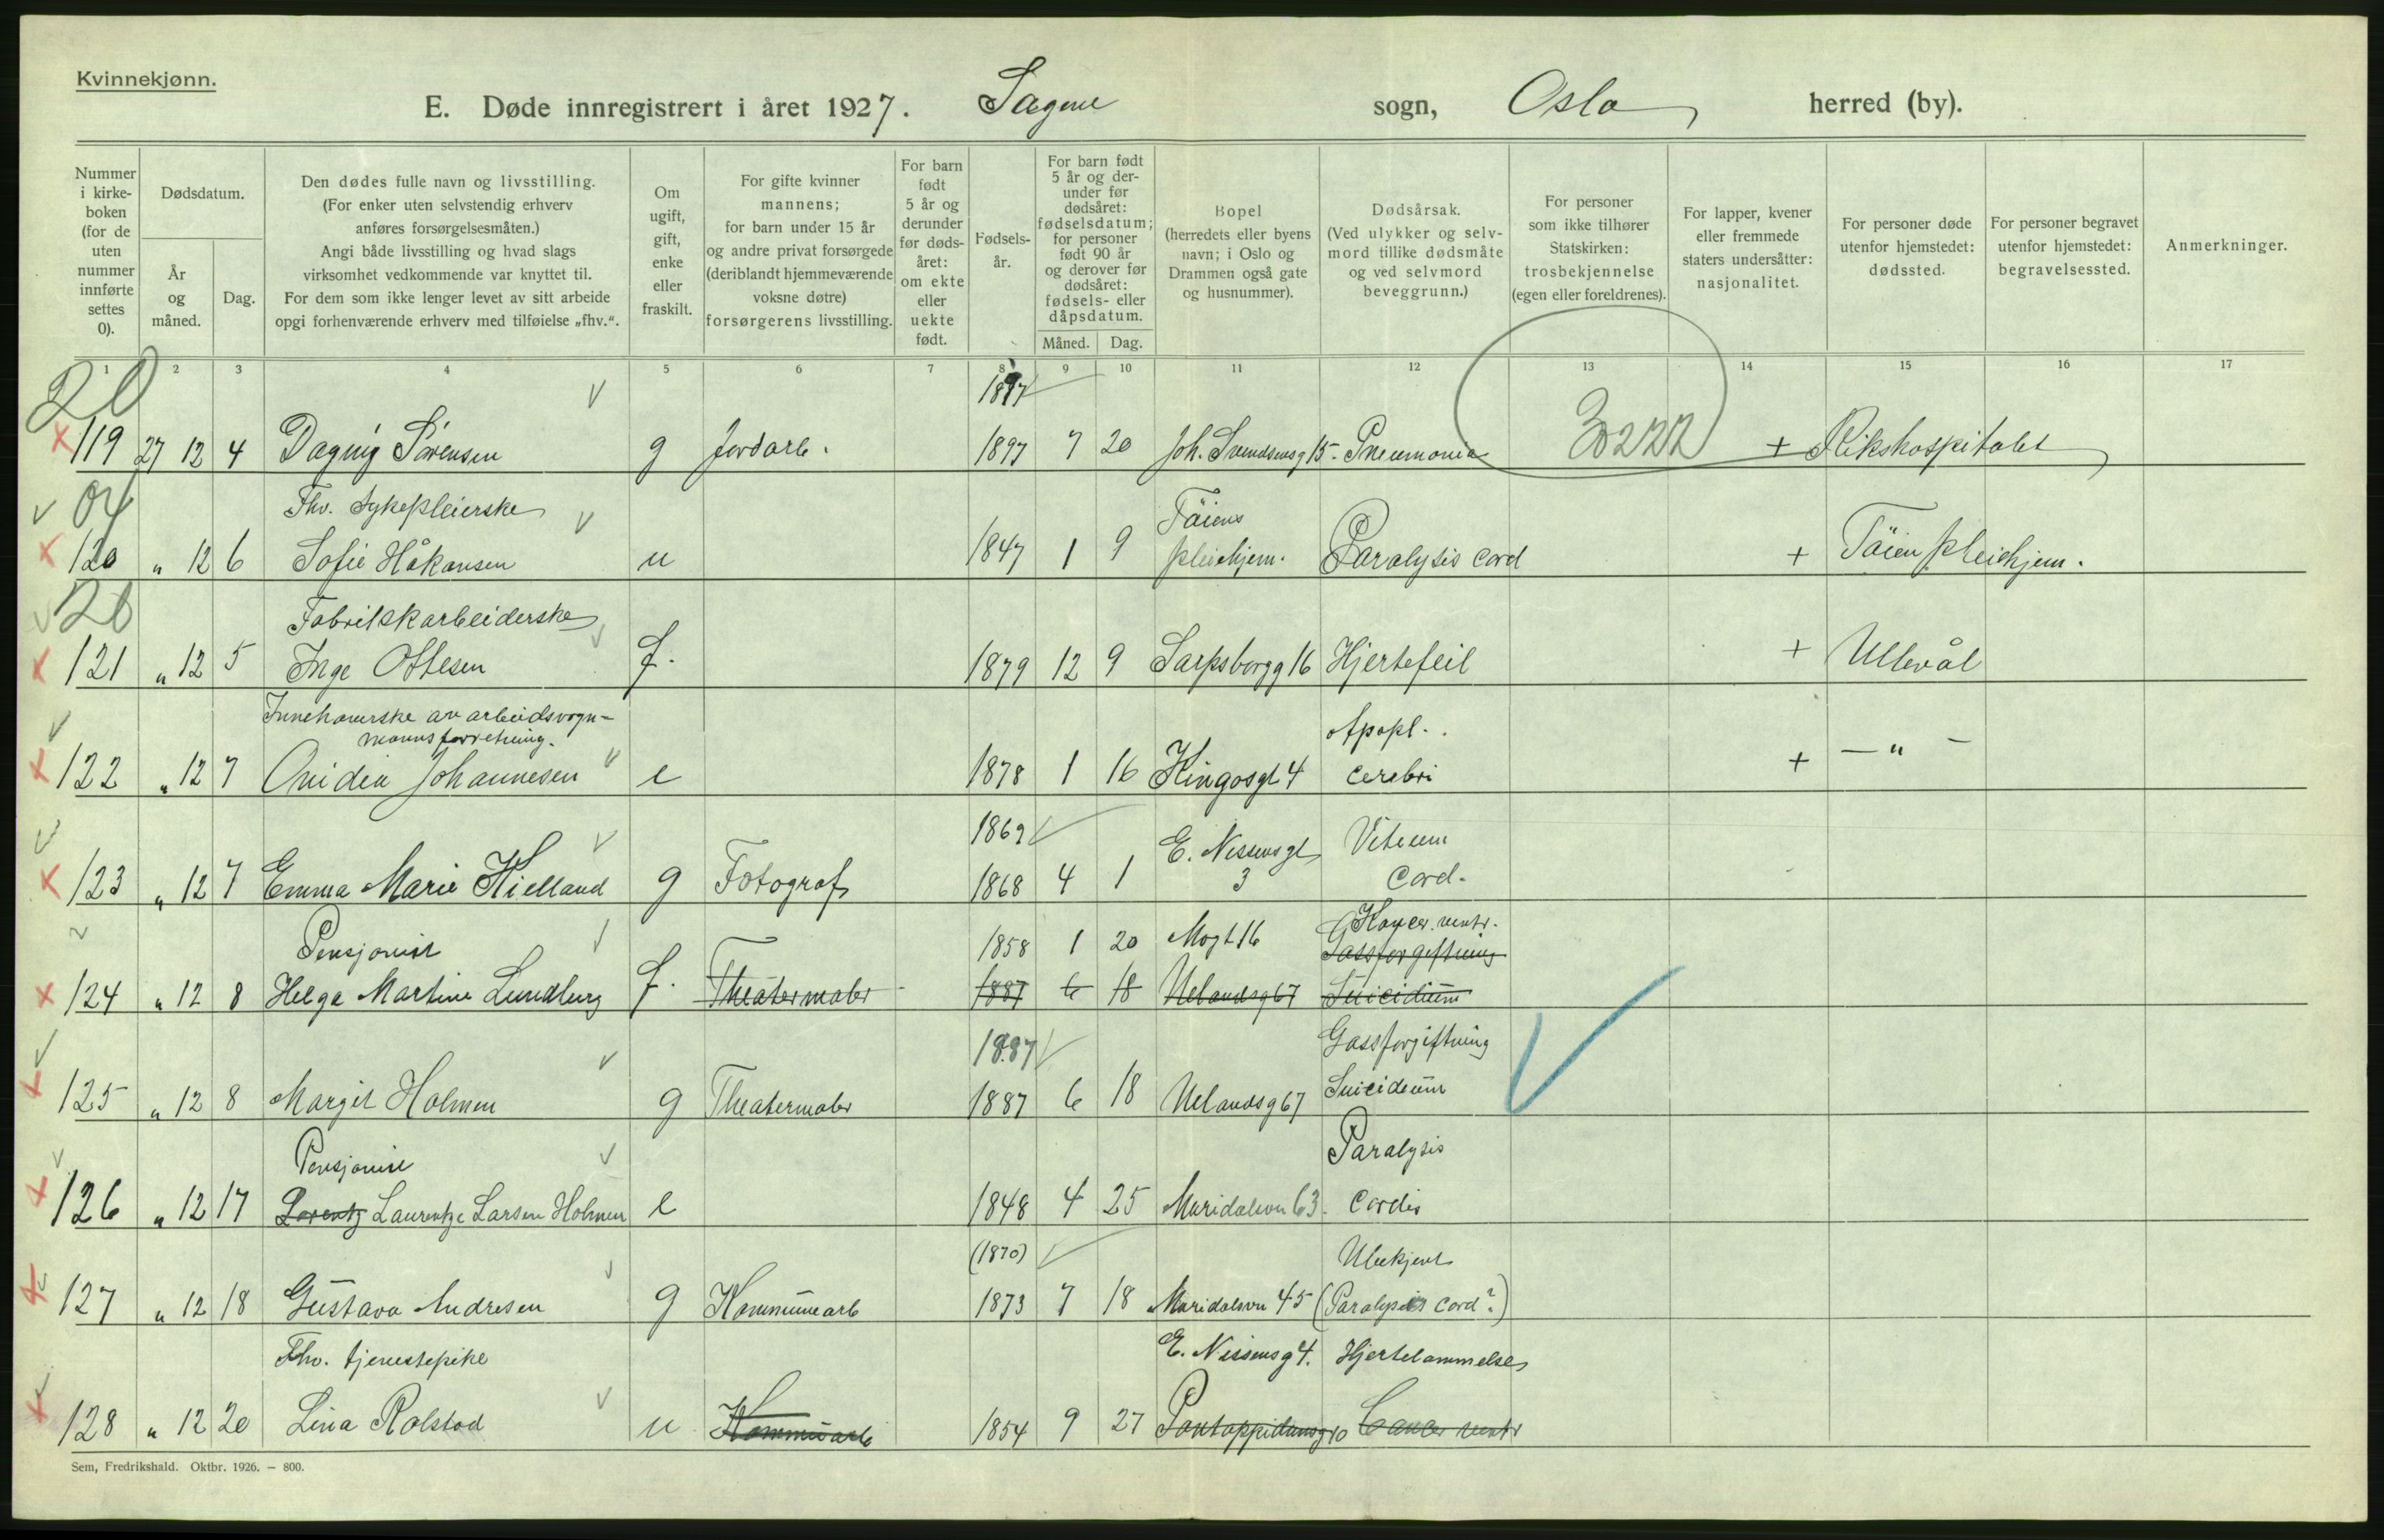 Kvinnekjønn.
E. Døde innregistrert i året 1927. Sagene sogn, Oslo herred (by).
Nummer i kirkeboken (for de uten nummer innførte settes 0).
Dødsdatum.
År og måned.
Dag.
Den dødes fulle navn og livsstilling.
(For enker uten selvstendig erhverv
anføres forsørgelsesmåten.)
Angi både livsstilling og hvad slags
virksomhet vedkommende var knyttet til.
For dem som ikke lenger levet av sitt arbeide
opgi forhenværende erhverv med tilføielse „fhv.“.
Om ugift, gift, enke eller fraskilt.
For gifte kvinner
mannens;
for barn under 15 år
og andre privat forsørgede
(deriblandt hjemmeværende
voksne døtre)
forsørgerens livsstilling.
For barn født 5 år og derunder før dødsåret: om ekte eller uekte født.
Fødselsår.
For barn født 5 år og derunder før dødsåret: fødselsdatum; for personer født 90 år og derover før dødsåret: fødsels- eller dåpsdatum.
Måned. Dag.
Bopel
(herredets eller byens
navn; i Oslo og
Drammen også gate
og husnummer).
Dødsårsak.
(Ved ulykker og selvmord tillike dødsmåte
og ved selvmord
beveggrunn.)
For personer
som ikke tilhører
Statskirken:
trosbekjennelse
(egen eller foreldrenes).
For lapper, kvener
eller fremmede
staters undersåtter:
nasjonalitet.
For personer døde
utenfor hjemstedet:
dødssted.
For personer begravet
utenfor hjemstedet:
begravelsessted.
Anmerkninger.
1 2 3 4 5 6 7 8 9 10 11 12 13 14 15 16 17
20 1897
119 27 12 4 Dagny Sørensen g Jordarb. 1897 7 20 Joh. Svendsensg 15 - Pneumonia + Rikshospitalet
04 Fhv. Sykepleierske Töiens
120 " 12 6 Sofie Håkansen u 1847 1 9 pleiehjem. Paralysis cord + Töien pleiehjem.
20 Fabrikkarbeiderske
121 " 12 5 Inga Ottesen f. 1879 12 9 Sarpsborgg 16 Hjertefeil + Ullevål
Innehaverske av arbeidsvogn-
mannsforretning. Apopl.
122 " 12 7 Ovidia Johannesen e 1878 1 16 Kingosgt 4 cerebri + — " —
1869 E. Nissensgt Vitium
123 " 12 7 Emma Marie Kielland g Fotograf 1868 4 1 3 Cord.
Pensjonist 1858 1 20 Mogt 16 Kancer. ventr.
Gassforgiftning
124 " 12 8 Helga Martine Lundberg f. Theatermaler 1887 6 18 Uelandsg 67 Suicidium
1887 Gassforgiftning
125 " 12 8 Margit Holmen g Theatermaler 1887 6 18 Uelandsg 67 Suicidium
Pensjonist Paralysis
126 " 12 17 Lorentz Laurentze Larsen Holmen e 1848 4 25 Maridalsvn 63. Cordis
(1870) Ubekjent
127 " 12 18 Gustava Andresen g Kommunearb 1873 7 18 Maridalsvn 45 (Paralysis cord?)
Fhv. tjenestepike E. Nissensg 4. Hjertelammelse
128 " 12 20 Lina Rolstad u Kommunearb 1854 9 27 Pontoppidansg 10 Cancer ventr
Sem, Fredrikshald. Oktbr. 1926. — 800.